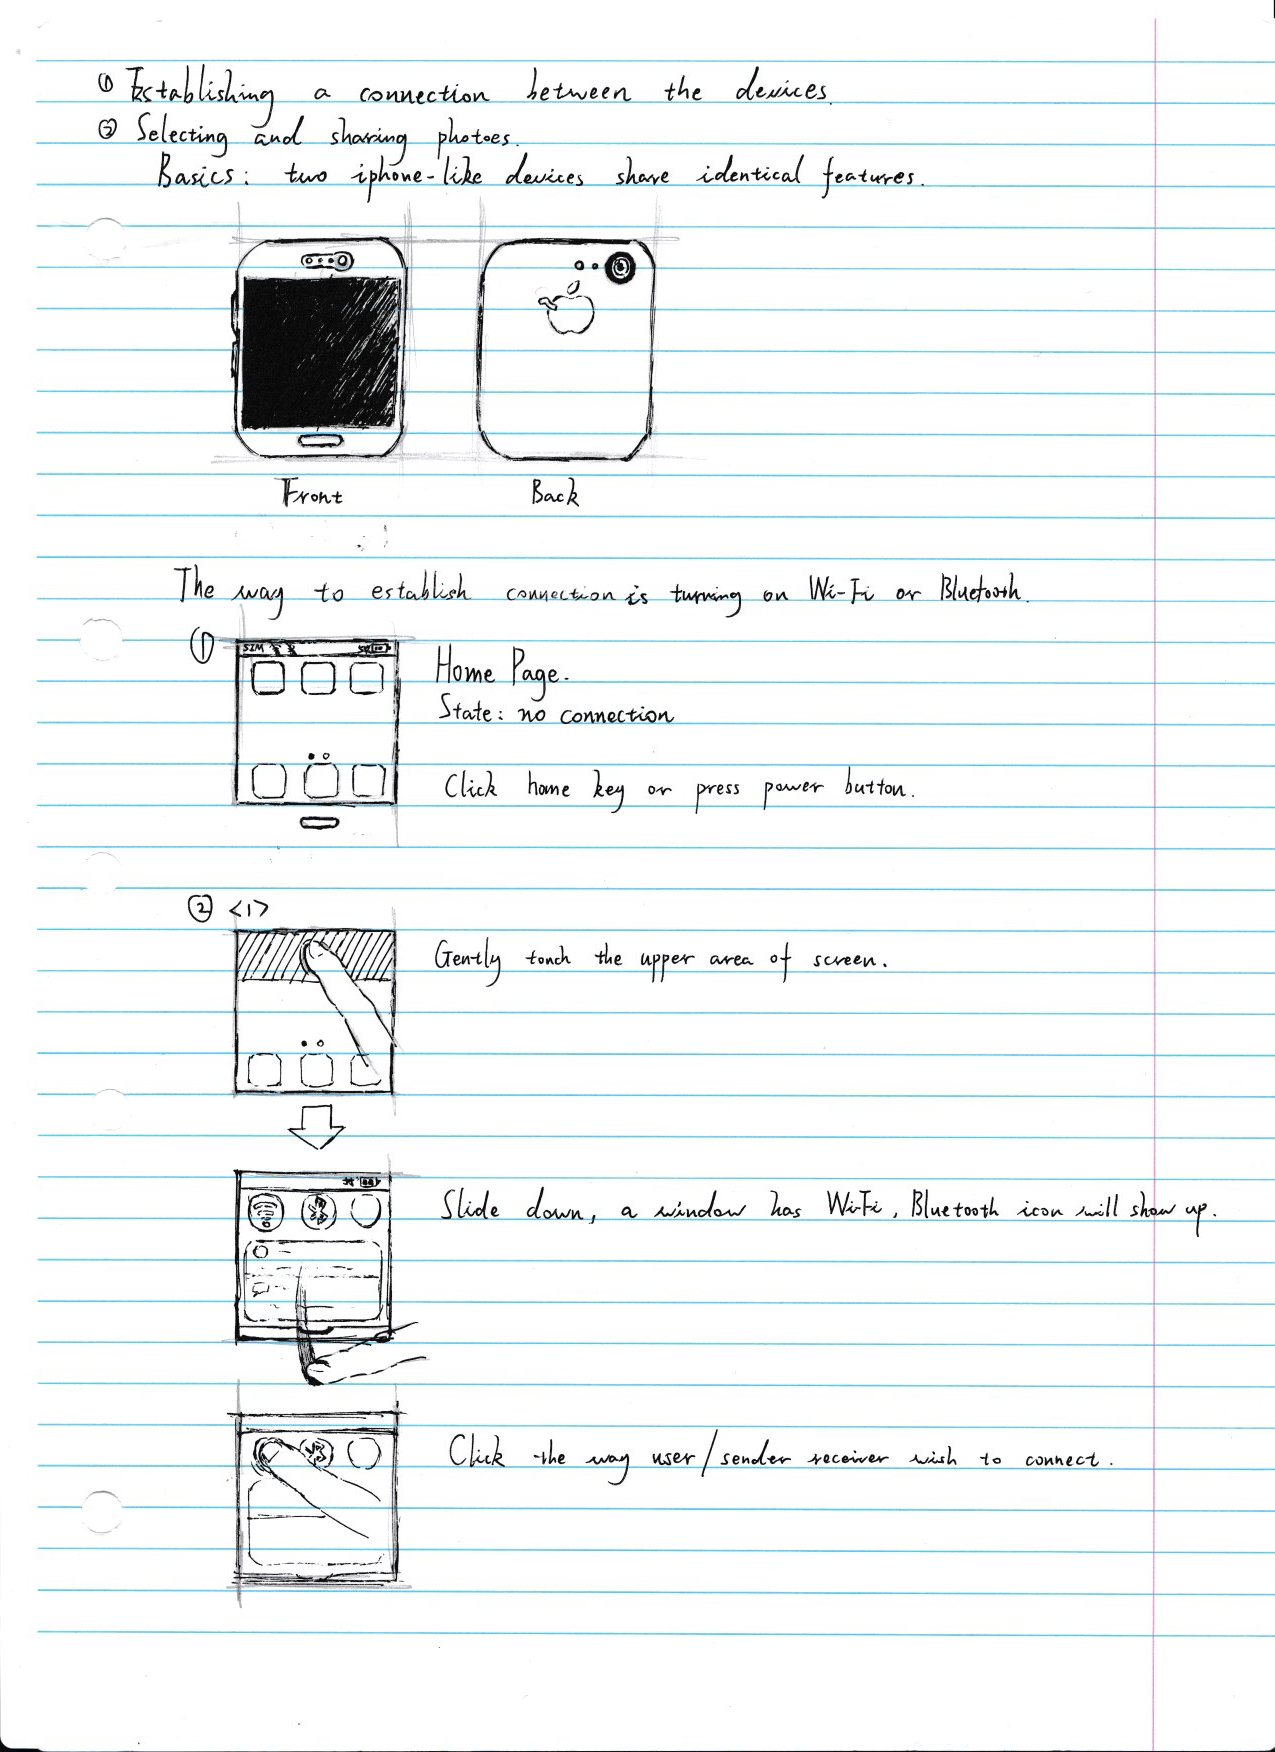 ① Establishing a connection between the devices.
② Selecting and sharing photoes.
Basics: two iphone-like devices share identical features.
Front
Back
The way to establish connection is turning on Wi-Fi or Bluetooth.
①
SIM
Home Page.
State: no connection
Click home key or press power button.
② <1>
Gently touch the upper area of screen.
Slide down, a window has WiFi, Bluetooth icon will show up.
Click the way user/sender receiver wish to connect.